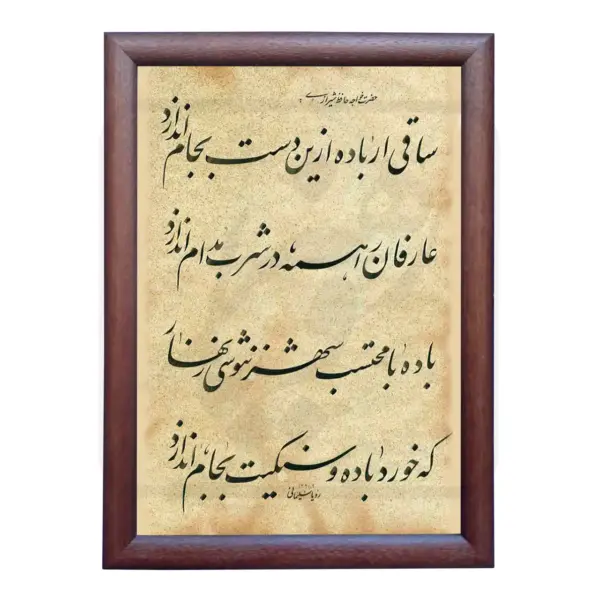 حضرت خواجه حافظ شیرازی
ساقی ار باده ازین دست بجام اندازد
عارفان را همه در شرب مدام اندازد
باده با محتسب شهر ننوشی زنهار
که خورد باده و سنگیت بجام اندازد
رویا سلیمانی